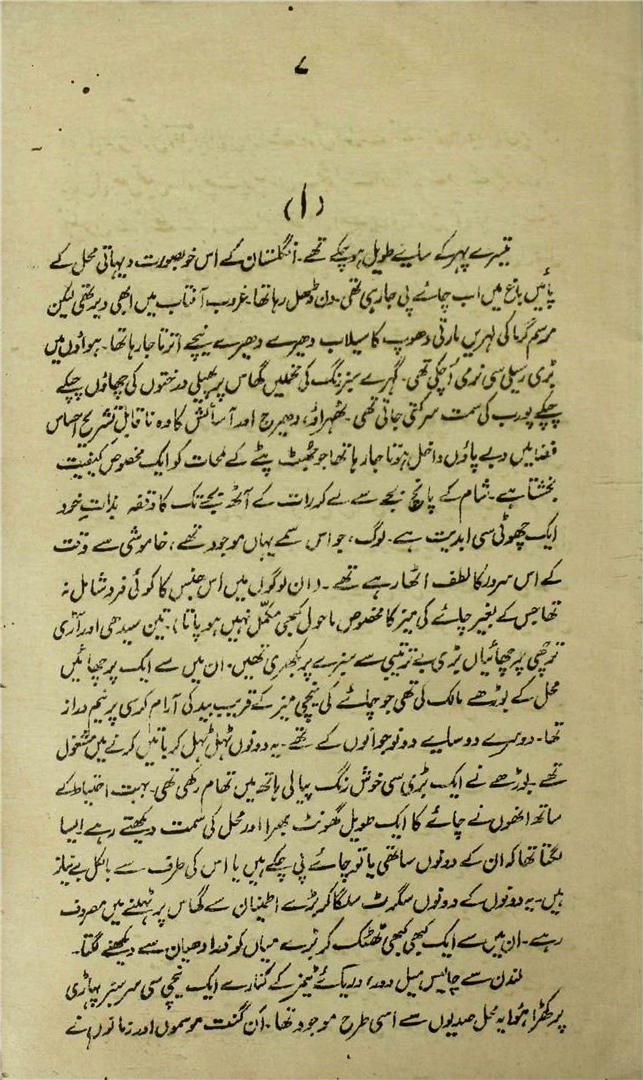 ۷
(۱)
تیسرے پہر کے سایے طویل ہو چکے تھے۔ انگلستان کے اس خوبصورت دیہاتی محل کے
پائیں باغ میں اب چائے پی جا رہی تھی۔ دن ڈھل رہا تھا۔ غروب آفتاب میں ابھی دیر تھی لیکن
موسم گرما کی لہریں مارتی دھوپ کا سیلاب دھیرے دھیرے نیچے اترتا جا رہا تھا۔ ہواؤں میں
بڑی رسیلی سی نرمی آ چکی تھی۔ گہرے سبز رنگ کی مخملیں گھاس پر پھیلی درختوں کی چھاؤں چپکے
چپکے پورب کی سمت سرکتی جاتی تھی۔ ٹھہراؤ، دھیرج اور آسائش کا وہ ناقابل تشریح احساس
فضا میں دبے پاؤں داخل ہوتا جا رہا تھا جو جھٹ پٹے کے لمحات کو ایک مخصوص کیفیت
بخشتا ہے۔ شام کے پانچ بجے سے لے کر رات کے آٹھ بجے تک کا وقفہ بذاتِ خود
ایک چھوٹی سی ابدیت ہے۔ لوگ، جو اس سمے یہاں موجود تھے، خاموشی سے وقت
کے اس سرور کا لطف اٹھا رہے تھے۔ (ان لوگوں میں اُس جنس کا کوئی فرد شامل نہ
تھا جس کے بغیر چائے کی میز کا مخصوص ماحول کبھی مکمّل نہیں ہو پاتا)۔ تین سیدھی اور آڑی
ترچھی پرچھائیاں بڑی بے ترتیبی سے سبزے پر بکھری تھیں۔ ان میں سے ایک پرچھائیں
محل کے بوڑھے مالک کی تھی جو چائے کی نیچی میز کے قریب بید کی آرام کرسی پر نیم دراز
تھا۔ دوسرے دو سایے دو نوجوانوں کے تھے۔ یہ دونوں ٹہل ٹہل کر باتیں کرنے میں مشغول
تھے۔ بوڑھے نے ایک بڑی سی خوش رنگ پیالی ہاتھ میں تھام رکھی تھی۔ بہت احتیاط کے
ساتھ انھوں نے چائے کا ایک طویل گھونٹ بھرا اور محل کی سمت دیکھتے رہے ایسا
لگتا تھا کہ ان کے دونوں ساتھی یا تو چائے پی چکے ہیں یا اس کی طرف سے بالکل بے نیاز
ہیں۔ یہ دونوں کے دونوں سگرٹ سلگا کر بڑے اطینان سے گھاس پر ٹہلنے میں مصروف
رہے۔ ان میں سے ایک کبھی کبھی ٹھٹک کر بڑے میاں کو ذرا دھیان سے دیکھنے لگتا۔
لندن سے چالیس میل دور، دریائے ٹیمز کے کنارے ایک نیچی سی سرسبز پہاڑی
پر کھڑا ہوا یہ محل صدیوں سے اسی طرح موجود تھا۔ اَن گنت موسموں اور زمانوں نے